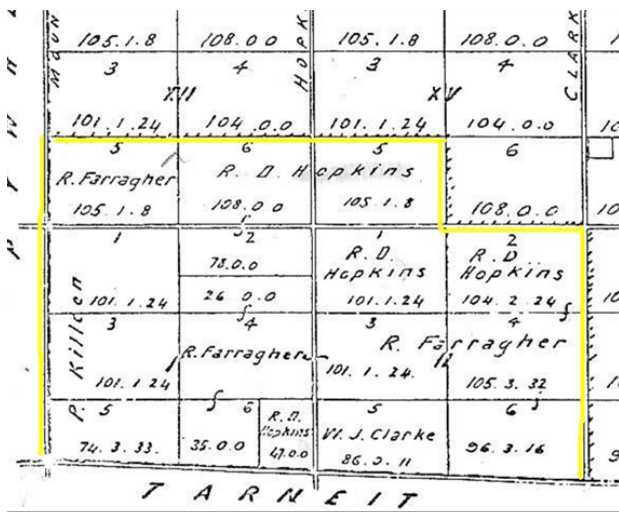 105.1.8 108.0.0 105.1.8 108.0.0
3 4 3 4
XV
101.1.24 104.0.0 101.1.24 104.0.0
HOPK
CLARK
5 6 5 6
R. Farragher R. D. Hopkins
105.1.8 108.0.0 105.1.8 108.0.0
1 2 1 2
78.0.0 R.D. R.D.
Hopkins Hopkins
101.1.24 26.0.0 101.1.24 104.2.24
3 4 3 4
P. Killeen
R. Farragher R. Farragher
101.1.24 101.1.24. 105.3.32
5 6 5 6
R.D.
Hopkins W. J. Clarke
74.3.33. 35.0.0 47.0.0 96.3.16
TARNEIT